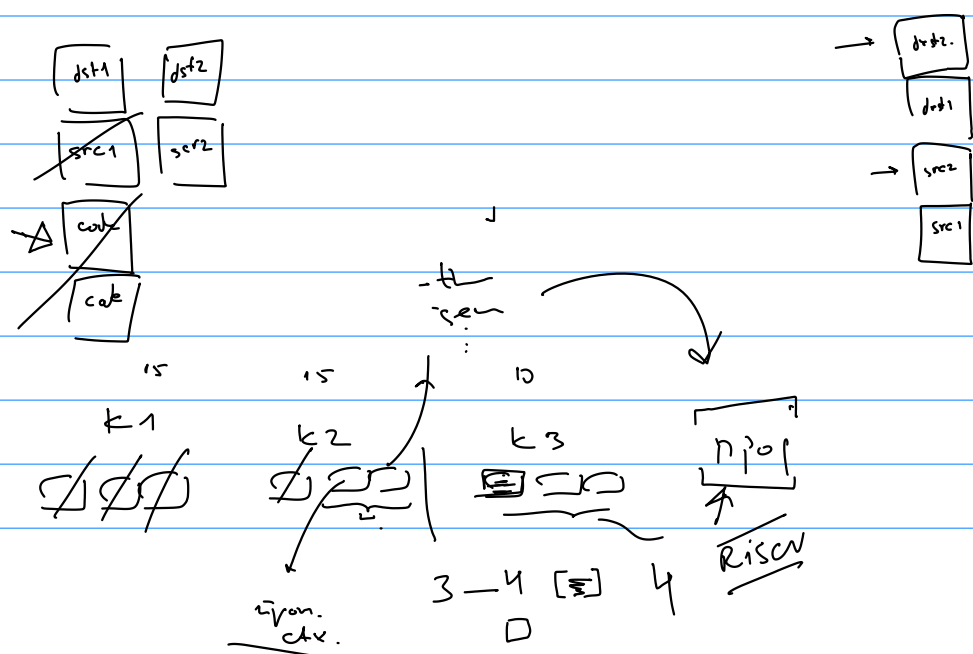 dst1 dst2
src1 scr2
code
code
dst2.
dst1
src2
src1
15 15 10
K1 K2 K3
3 — 4 4
RISCV
ctx.